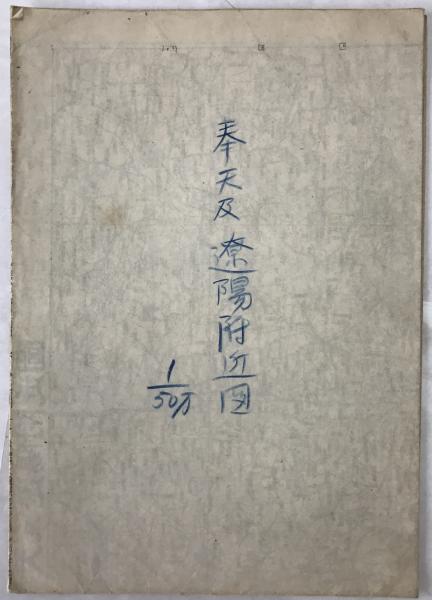 奉天及遼陽附近図
1/50万